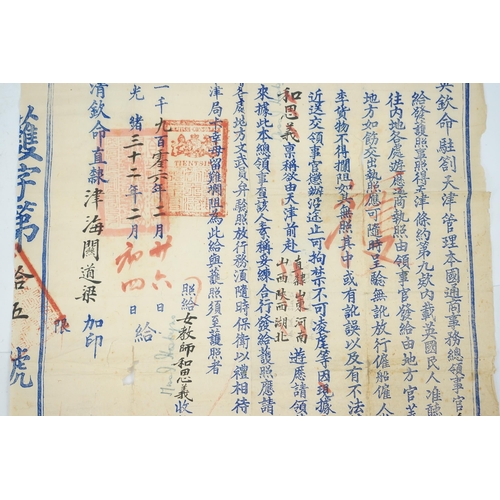 英欽命駐劄天津管理本國通商事務總領事官
給發護照事照得天津條約第九欵內載英國民人准聽
往內地各處遊歷通商執照由領事官發給由地方官
地方如飭交出執照應可隨時呈驗無訛放行僱船僱人
李貨物不得攔阻如其無照其中或有訛誤以及有不法
近送交領事官懲辦沿途止可拘禁不可凌虐等因現據
和恩義稟稱欲由天津前赴直隸山東河南山西陝西湖北遊歷請領
來據此本總領事查該人素稱妥練合行發給護照應請
各處地方文武員弁驗照放行務須隨時保衛以禮相待
津局卡幸毋留難攔阻為此給與護照須至護照者
照給女教師和恩義收
一千九百零六年二月廿六日
光緒三十二年二月初四日給
TIENTSIN
清欽命直隸津海關道梁加印
護字第拾五號
護